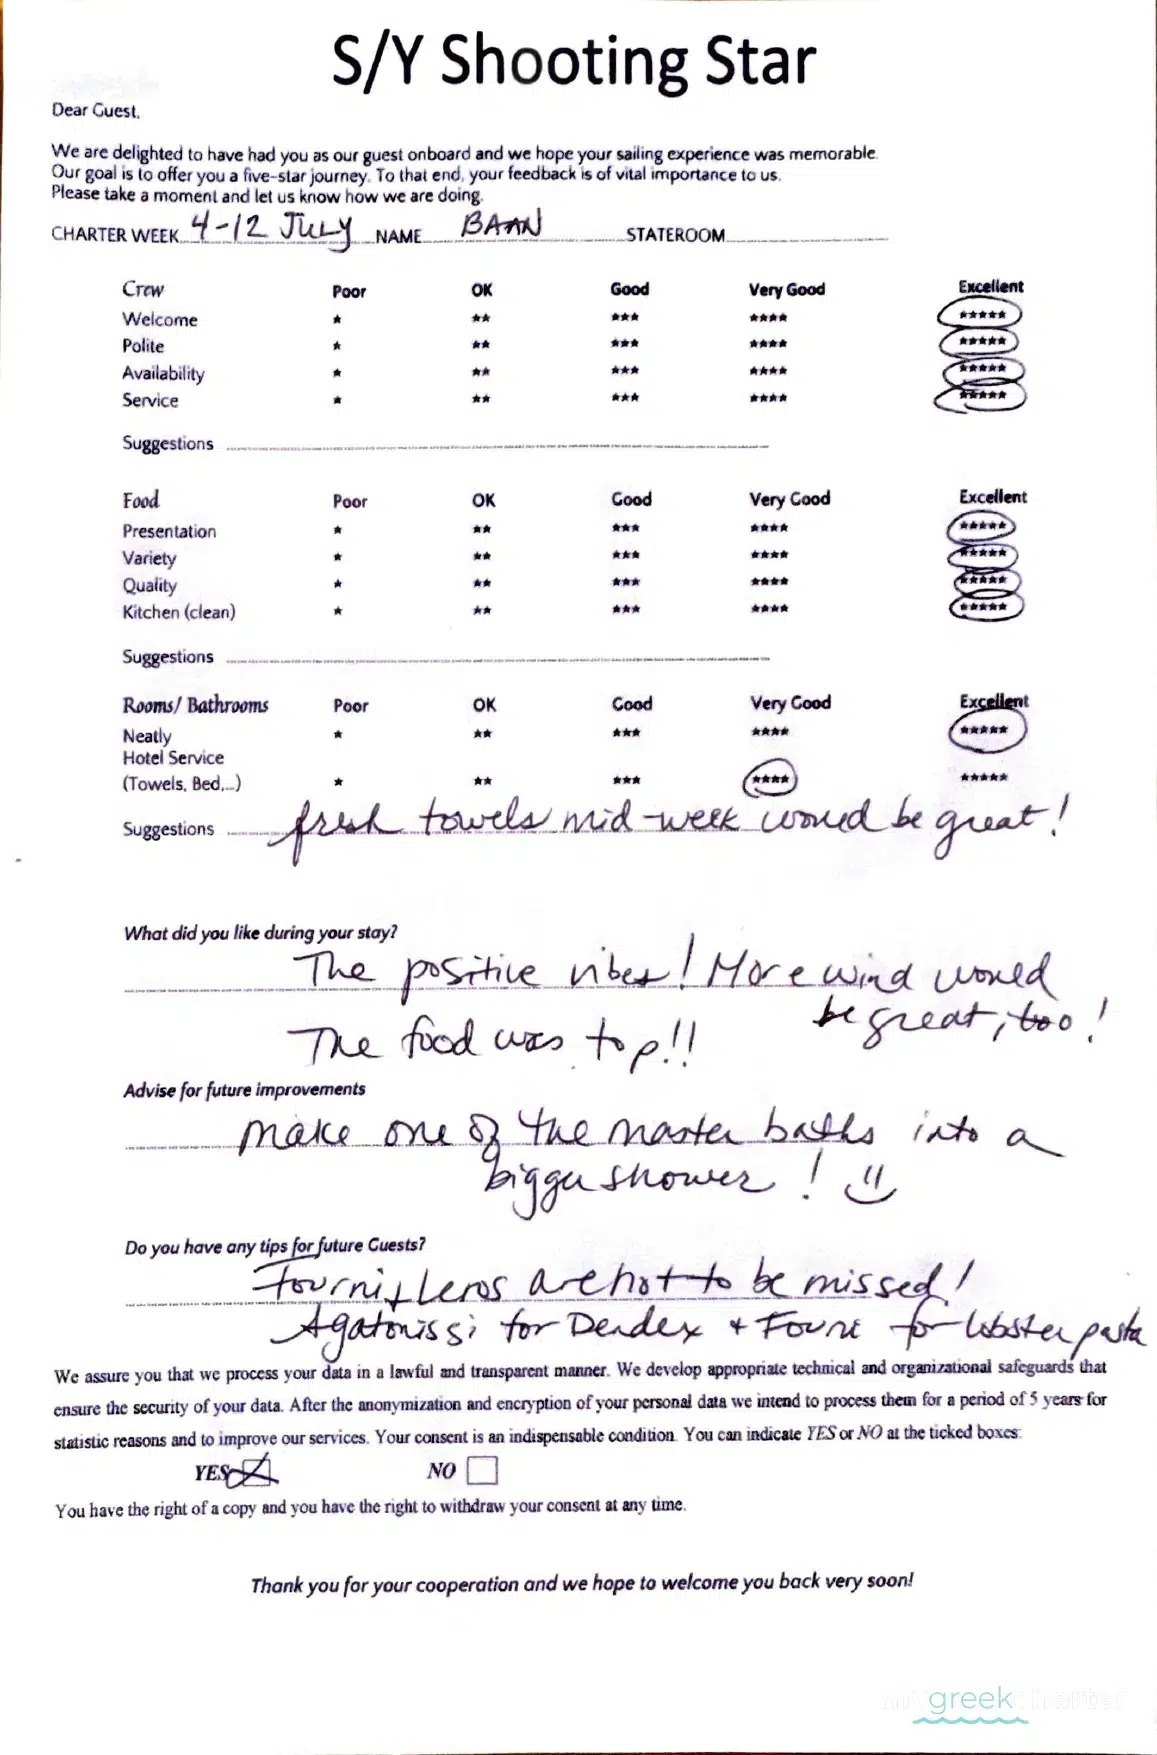 S/Y Shooting Star
Dear Guest,
We are delighted to have had you as our guest onboard and we hope your sailing experience was memorable.
Our goal is to offer you a five-star journey. To that end, your feedback is of vital importance to us.
Please take a moment and let us know how we are doing.
CHARTER WEEK 4-12 JULY NAME BAAN STATEROOM
Crew Poor OK Good Very Good Excellent
Welcome ★ ★★ ★★★ ★★★★ ★★★★★
Polite ★ ★★ ★★★ ★★★★ ★★★★★
Availability ★ ★★ ★★★ ★★★★ ★★★★★
Service ★ ★★ ★★★ ★★★★ ★★★★★
Suggestions
Food Poor OK Good Very Good Excellent
Presentation ★ ★★ ★★★ ★★★★ ★★★★★
Variety ★ ★★ ★★★ ★★★★ ★★★★★
Quality ★ ★★ ★★★ ★★★★ ★★★★★
Kitchen (clean) ★ ★★ ★★★ ★★★★ ★★★★★
Suggestions
Rooms/ Bathrooms Poor OK Good Very Good Excellent
Neatly ★ ★★ ★★★ ★★★★ ★★★★★
Hotel Service
(Towels, Bed,...) ★ ★★ ★★★ ★★★★ ★★★★★
Suggestions fresh towels mid-week would be great!
What did you like during your stay?
The positive vibes! More wind would
be great, too!
The food was top!!
Advise for future improvements
make one of the master baths into a
bigger shower! :)
Do you have any tips for future Guests?
Fourni + Leros are not to be missed!
Agatonissi for + Fourni for lobster pasta
We assure you that we process your data in a lawful and transparent manner. We develop appropriate technical and organizational safeguards that
ensure the security of your data. After the anonymization and encryption of your personal data we intend to process them for a period of 5 years for
statistic reasons and to improve our services. Your consent is an indispensable condition. You can indicate YES or NO at the ticked boxes:
YES NO
You have the right of a copy and you have the right to withdraw your consent at any time.
Thank you for your cooperation and we hope to welcome you back very soon!
my greek charter